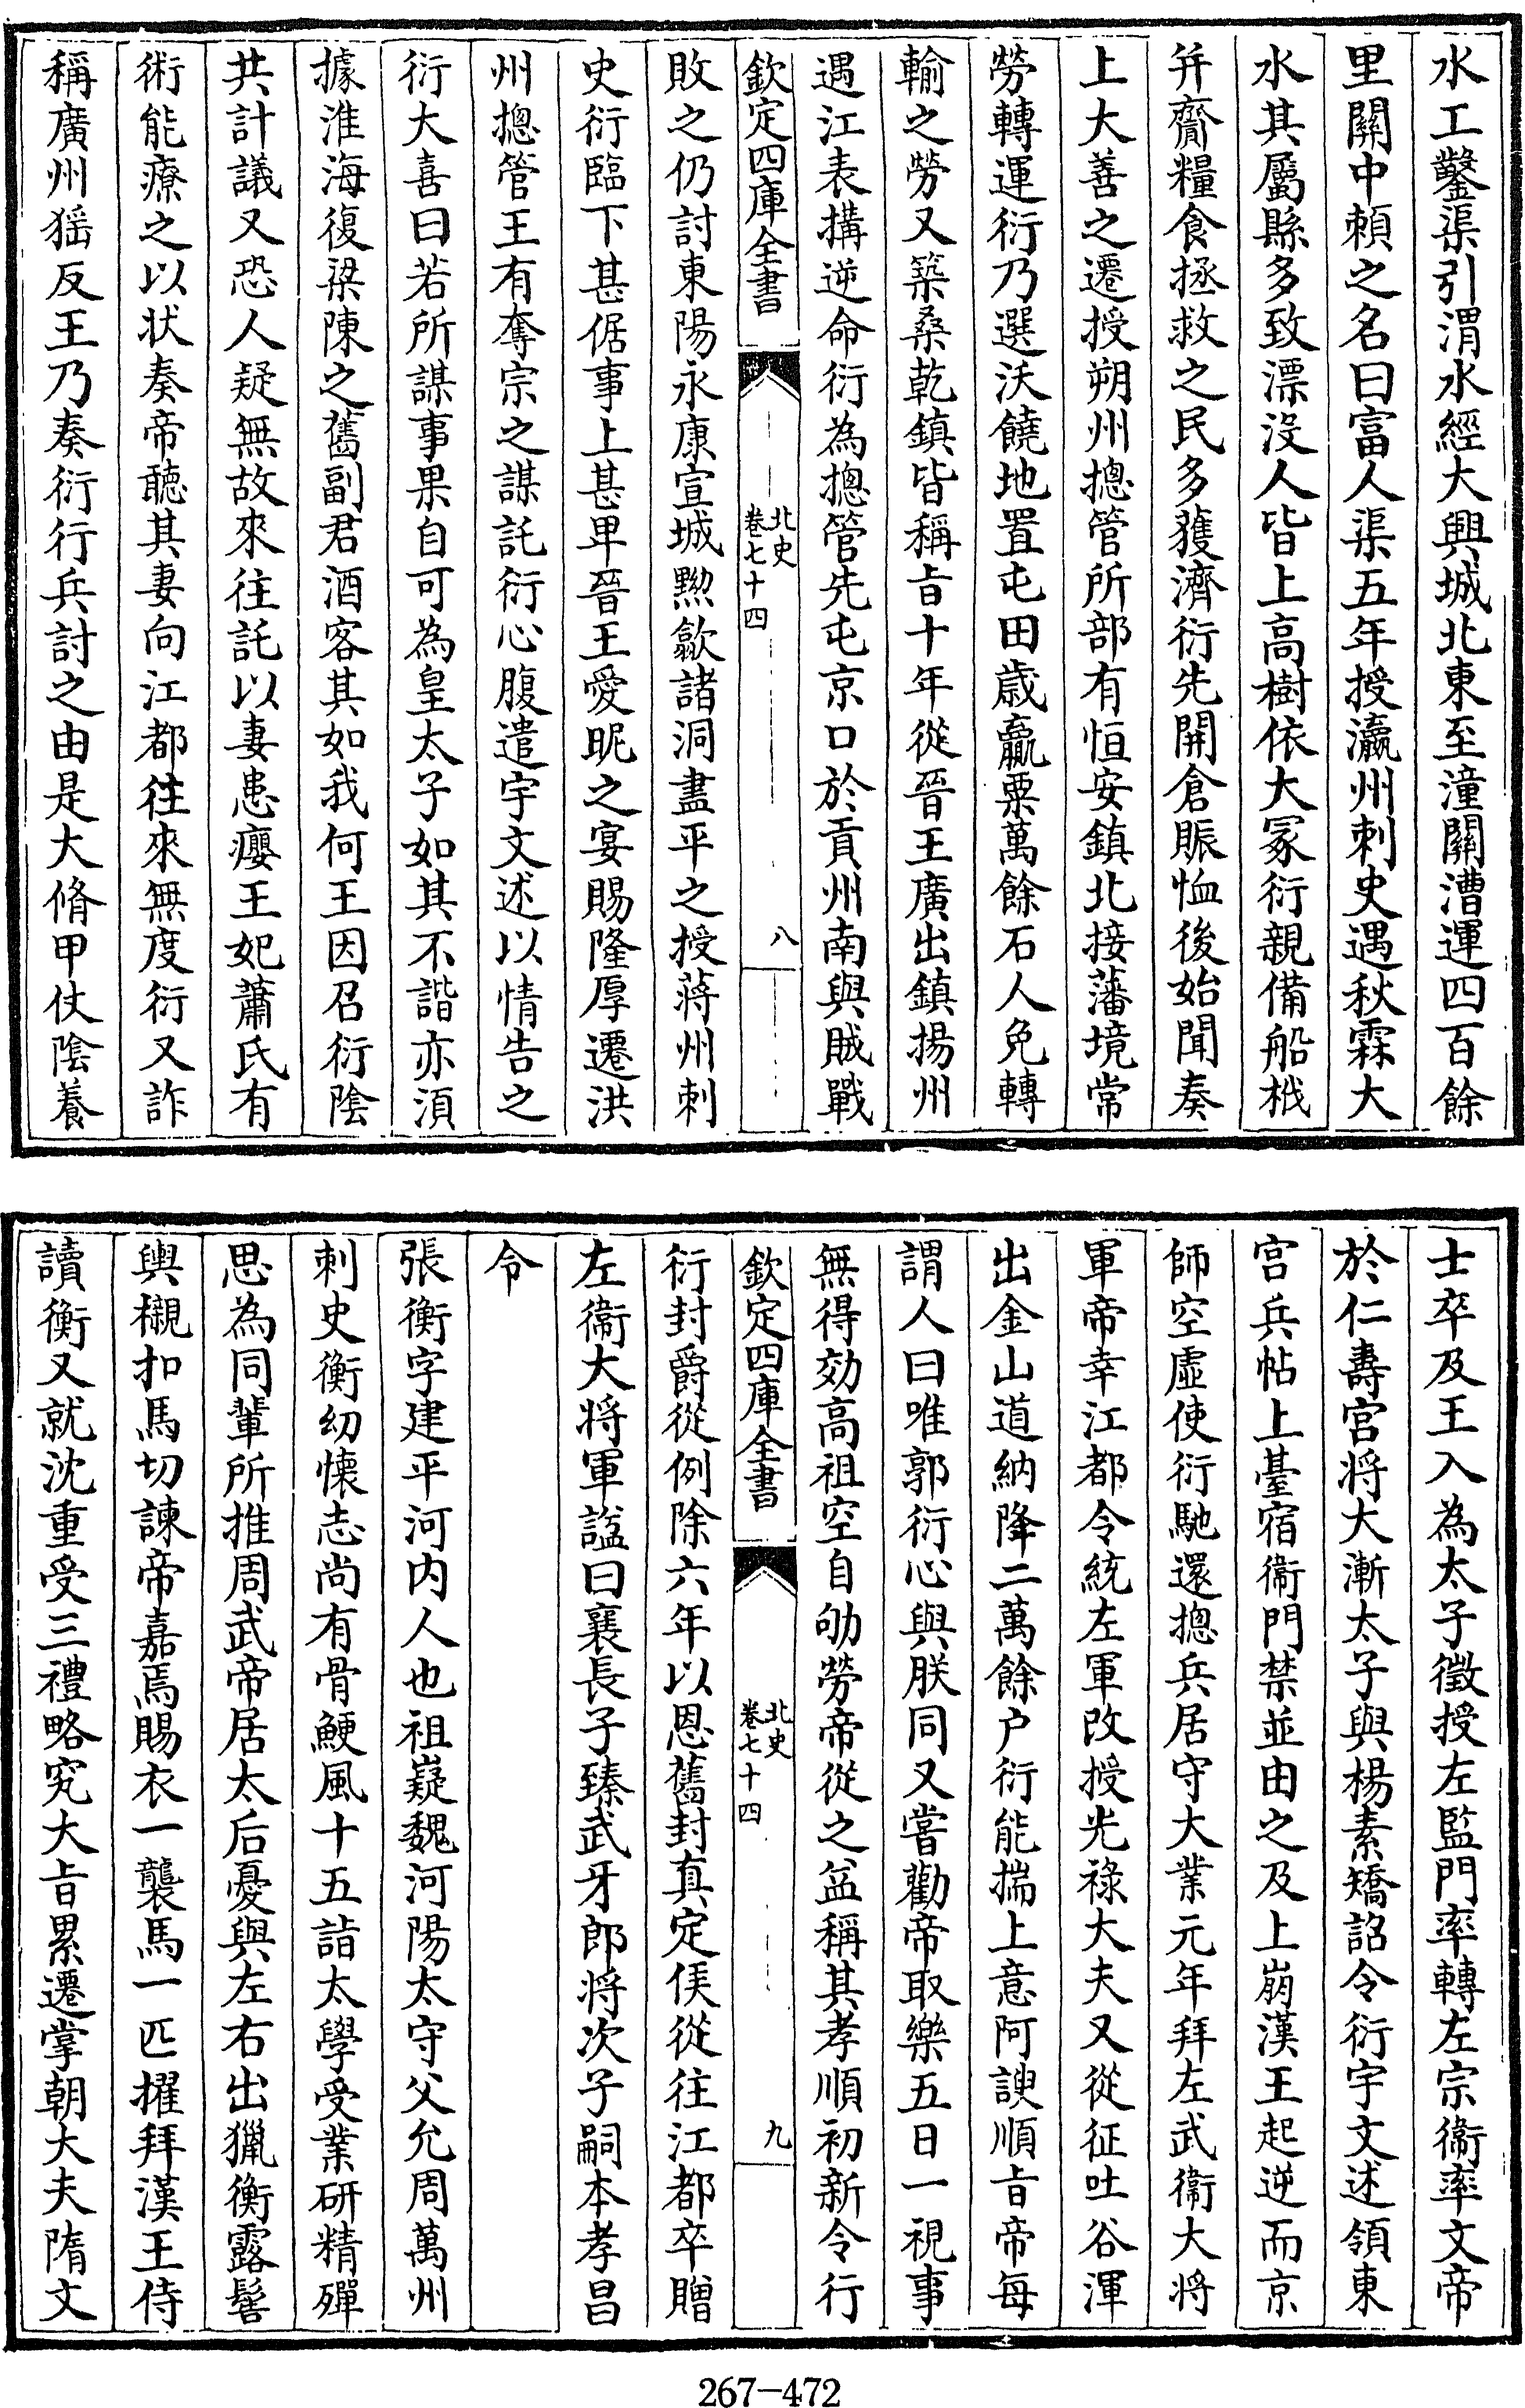 水工鑿渠引渭水經大興城北東至潼關漕運四百餘
里關中頼之名曰富人渠五年授瀛州刺史遇秋霖大
水其屬縣多致漂没人皆上高樹依大冢衍親備船栰
并齎糧食拯救之民多獲濟衍先開倉賑恤後始聞奏
上大善之遷授朔州摠管所部有恒安鎮北接藩境常
勞轉運衍乃選沃饒地置屯田歲贏粟萬餘石人免轉
輸之勞又築桑乾鎮皆稱㫖十年從晉王廣出鎮揚州
遇江表搆逆命衍為摠管先屯京口於貢州南與賊戰
欽定四庫全書
北史
卷七十四
八
敗之仍討東陽永康宣城黝歙諸洞盡平之授蔣州刺
史衍臨下甚倨事上甚卑晉王愛昵之宴賜隆厚遷洪
州摠管王有奪宗之謀託衍心腹遣宇文述以情告之
衍大喜曰若所謀事果自可為皇太子如其不諧亦湏
據淮海復梁陳之舊副君酒客其如我何王因召衍隂
共計議又恐人疑無故來往託以妻患癭王妃蕭氏有
術能療之以狀奏帝聽其妻向江都往來無度衍又詐
稱廣州猺反王乃奏衍行兵討之由是大脩甲仗隂養
士卒及王入為太子徵授左監門率轉左宗衞率文帝
於仁壽宫将大漸太子與楊素矯詔令衍宇文述領東
宫兵帖上臺宿衞門禁並由之及上崩漢王起逆而京
師空虛使衍馳還摠兵居守大業元年拜左武衞大将
軍帝幸江都令統左軍改授光祿大夫又從征吐谷渾
出金山道納降二萬餘户衍能揣上意阿諛順㫖帝每
謂人曰唯郭衍心與朕同又嘗勸帝取樂五日一視事
無得効高祖空自劬勞帝從之益稱其孝順初新令行
欽定四庫全書
北史
卷七十四
九
衍封爵從例除六年以恩舊封真定侯從往江都卒贈
左衞大将軍諡曰襄長子臻武牙郎将次子嗣本孝昌
令
張衡字建平河内人也祖嶷魏河陽太守父允周萬州
刺史衡幼懐志尚有骨鯁風十五詣太學受業研精殫
思為同輩所推周武帝居太后憂與左右出獵衡露髻
輿櫬扣馬切諫帝嘉焉賜衣一襲馬一匹擢拜漢王侍
讀衡又就沈重受三禮略究大㫖累遷掌朝大夫隋文
267-472